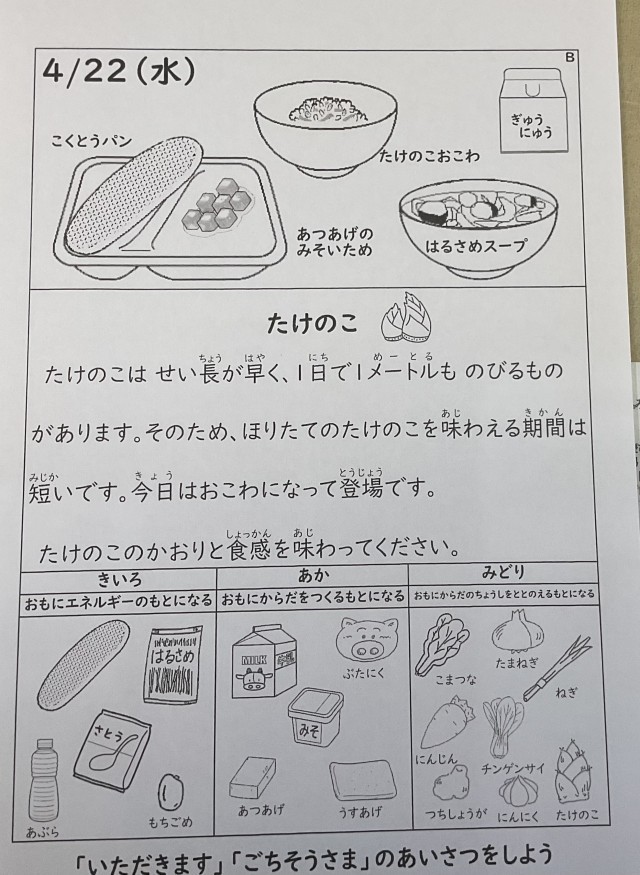 4/22(水)
B
こくとうパン
たけのこおこわ
ぎゅう
にゅう
あつあげの
みそいため
はるさめスープ
たけのこ
たけのこは せい長が早く、1日で1メートルも のびるもの
ちょう はや にち めーとる
があります。そのため、ほりたてのたけのこを味わえる期間は
あじ きかん
短いです。今日はおこわになって登場です。
みじか きょう とうじょう
たけのこのかおりと食感を味わってください。
しょっかん あじ
きいろ
おもにエネルギーのもとになる
はるさめ
さとう
あぶら
もちごめ
あか
おもにからだをつくるもとになる
MILK
ぶたにく
みそ
あつあげ
うすあげ
みどり
おもにからだのちょうしをととのえるもとになる
こまつな
たまねぎ
ねぎ
にんじん
チンゲンサイ
つちしょうが
にんにく
たけのこ
「いただきます」「ごちそうさま」のあいさつをしよう